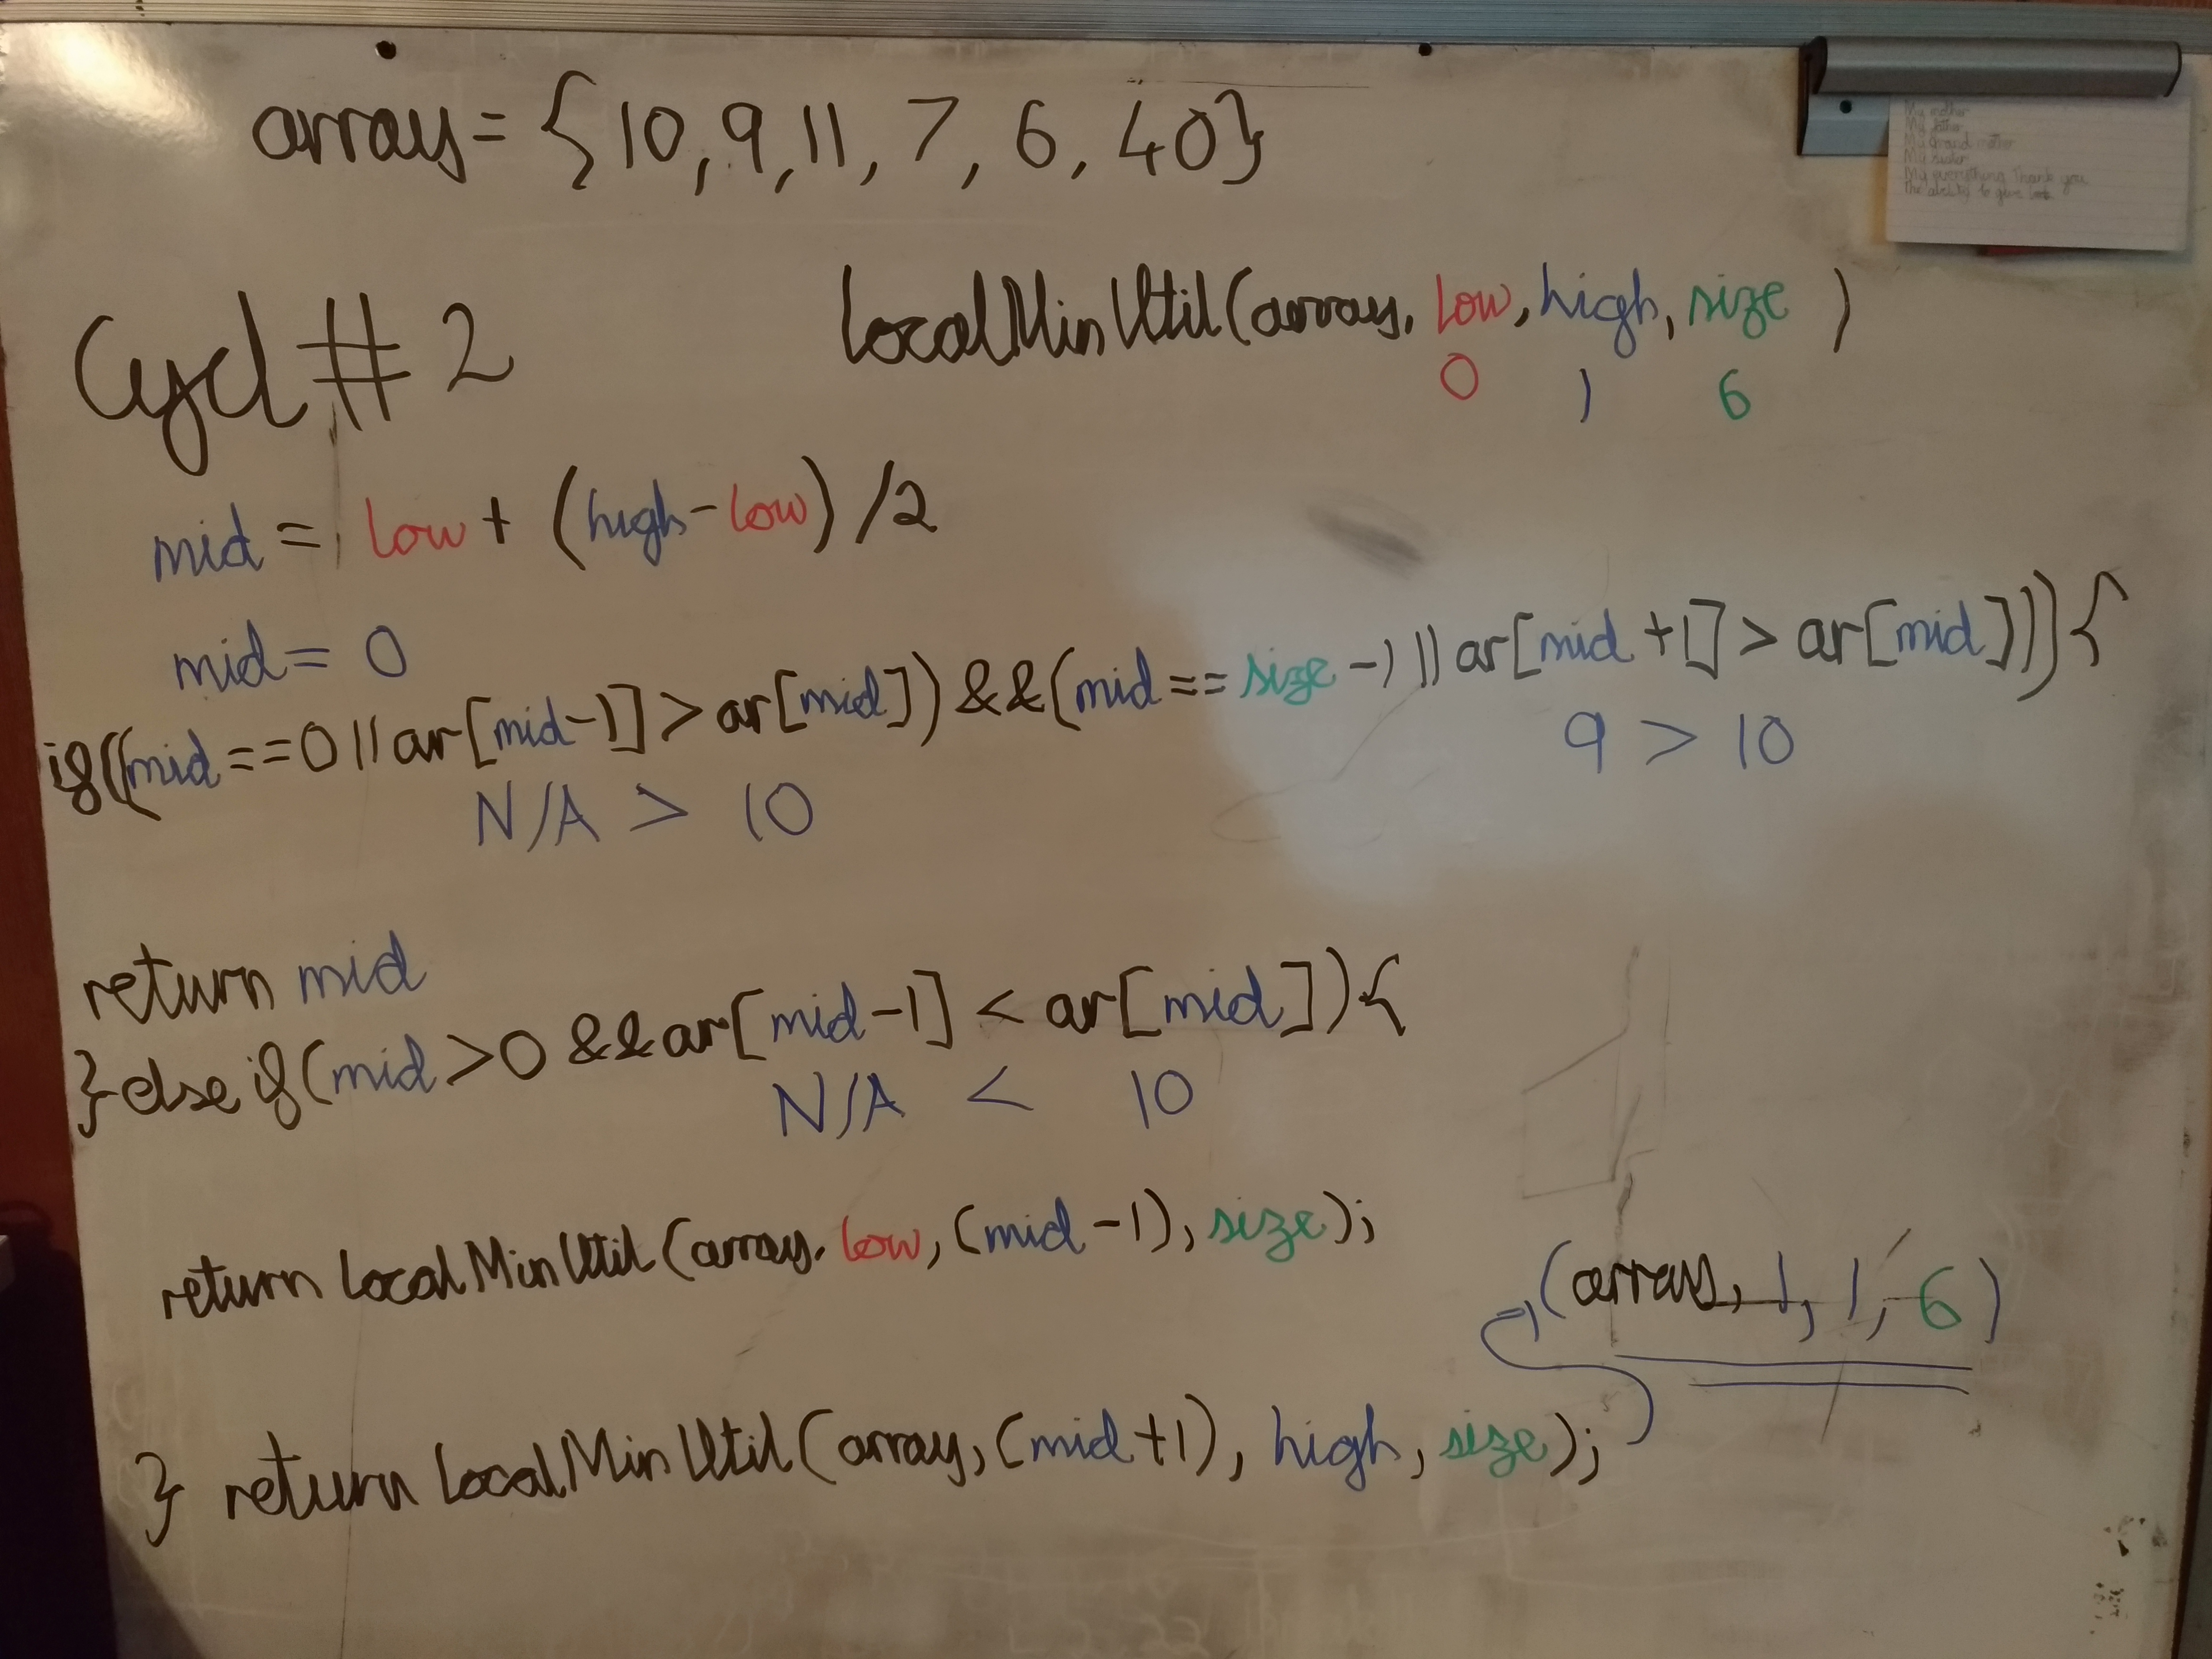 array = {10, 9, 11, 7, 6, 40}
My mother
My father
My Grand mother
My sister
My everything Thank you
The ability to give
Cycl # 2
LocalMinUtil(array, low, high, size )
0 1 6
mid = low + (high-low) /2
mid = 0
if((mid==0 || ar[mid-1] > ar[mid]) && (mid == size -1 || ar[mid +1] > ar[mid])){
N/A > 10
9 > 10
return mid
} else if(mid >0 && ar[mid-1] < ar[mid]){
N/A < 10
return LocalMinUtil(array, low, (mid-1), size);
(array, 1, 1, 6)
} return LocalMinUtil(array, (mid+1), high, size);